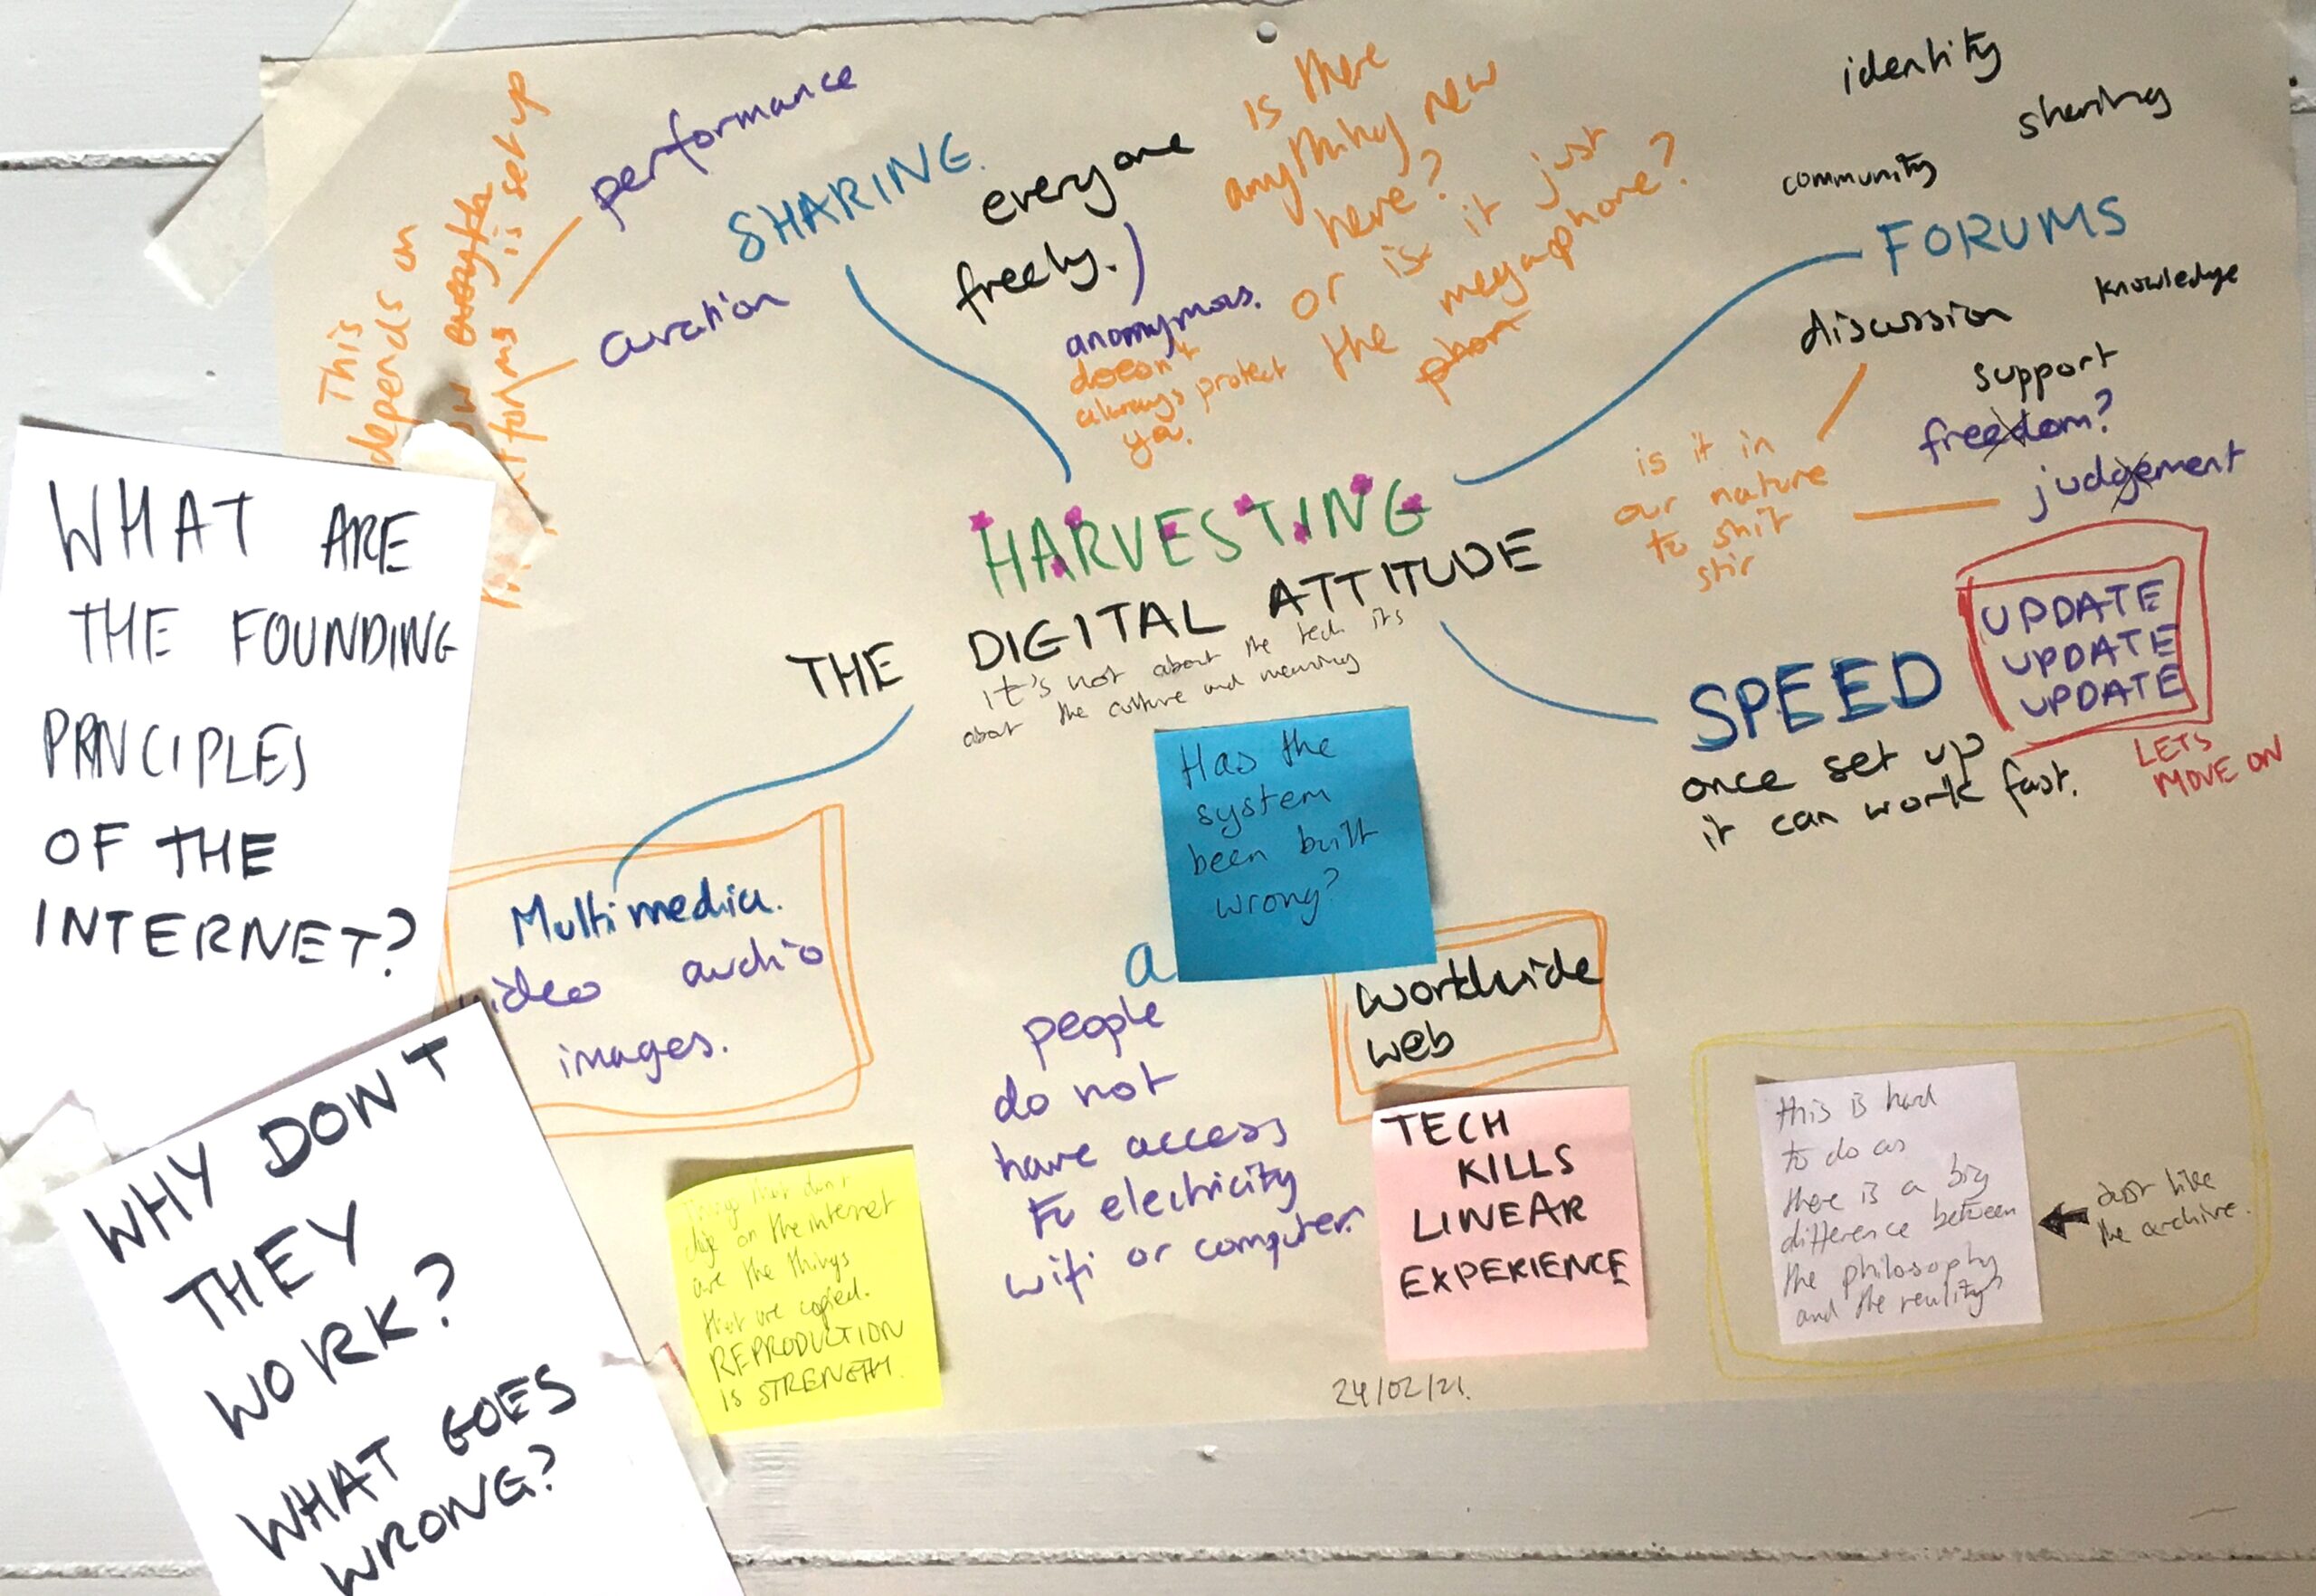 This
depends on
is set up
performance
curation
SHARING.
everyone
freely.)
anonymous.
doesn't
always protect
ya.
is there
anything new
here?
or is it just
the megaphone?
identity
sharing
community
FORUMS
discussion
knowledge
support
freedom?
judgement
is it in
our nature
to shit
stir
HARVESTING
THE DIGITAL ATTITUDE
it's not about the tech its
about the culture and meaning
SPEED
UPDATE
UPDATE
UPDATE
LETS
MOVE ON
once set up
it can work fast.
WHAT ARE
THE FOUNDING
PRINCIPLES
OF THE
INTERNET?
WHY DON'T
THEY
WORK?
WHAT GOES
WRONG?
Multimedia.
video audio
images.
Has the
system
been built
wrong?
a
people
do not
have access
to electricity
wifi or computer.
worldwide
web
TECH
KILLS
LINEAR
EXPERIENCE
Things that don't
die on the internet
are the things
that are copied.
REPRODUCTION
IS STRENGTH.
this is hard
to do as
there is a big
difference between
the philosophy
and the reality
Just like
the archive.
24/02/21.